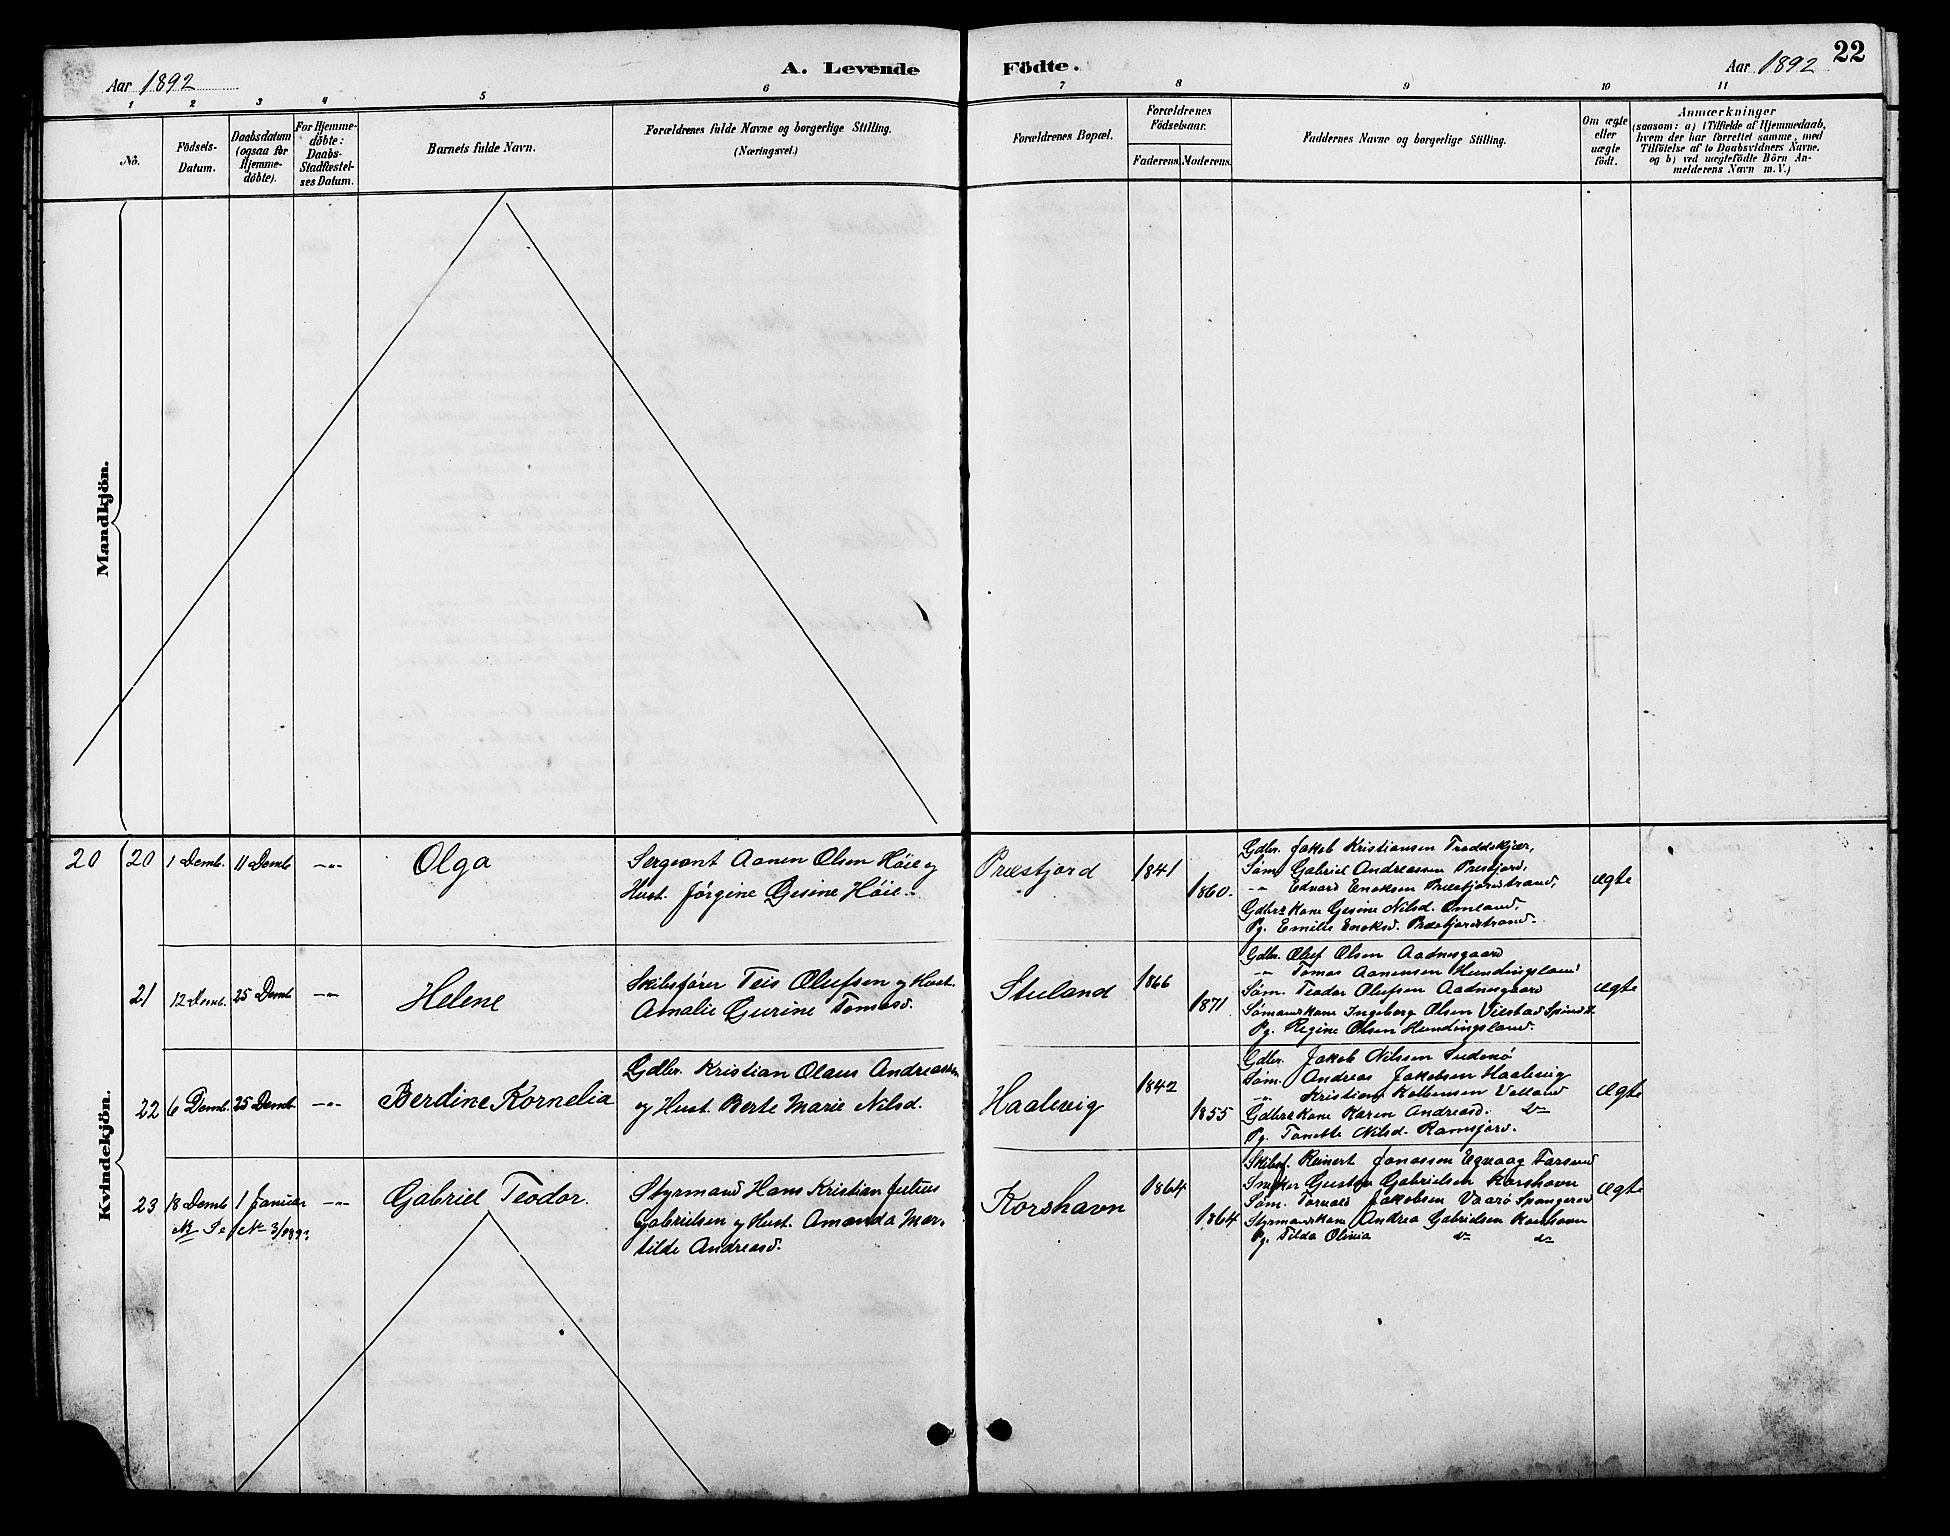 Aar 1892
A. Levende
Födte.
Aar 1892
22
1 2 3 4 5 6 7 8 9 10 11
Nö.
Födsels-
Datum.
Daabsdatum
(ogsaa for
Hjemme-
döbte).
For Hjemme-
döbte:
Daabs-
Stadfæstel-
ses Datum.
Barnets fulde Navn.
Forældrenes fulde Navne og borgerlige Stilling.
(Næringsvei.)
Forældrenes Bopæl.
Forældrenes
Födselsaar.
Faderens.
Moderens.
Faddernes Navne og borgerlige Stilling.
Om ægte
eller
uægte
födt.
Anmærkninger
(saasom: a) i Tilfælde af Hjemmedaab,
hvem der har forrettet samme, med
Tilföielse af to Daabsvidners Navne.
og b) ved uægtefödte Börn An-
melderens Navn m.V.)
Mandkjön.
Kvindekjön.
20
20
1 Demb.
11 Demb
-"-
Olga
Sergeant Aanen Olsen Höie og
Hust. Jörgine Gesine Höie.
Præstfjord
1841
1860.
Gdbr. Jakob Kristiansen Traddskjær,
Söm. Gabriel Andreassen Prestfjord,
-"- Edvard Enoksen Præstfjordstrand,
Gdbrs Kone Gesine Nilsd. Omland.
Pg. Emilie Enoksd. Præstfjordstrand.
ægte
21
12 Demb.
25 Demb
-"-
Helene
Skibsförer Teis Olufsen og Hust.
Amalie Gurine Tomasd.
Stuland
1866
1871
Gdbr. Oluf Olsen Aadnesgaard
-"- Tomas Aanensen Hundingsland
Söm. Teodor Olufsen Aadnesgaard
Sömandskone Ingeborg Olsen
Pg. Regine Olsen Hundingsland.
ægte
22
6 Demb.
25 Demb.
-"-
Berdine Kornelia
Gdbr. Kristian Olaus Andreassen
og Hust. Berte Marie Nilsd.
Haalevig
1842
1855
Gdbr. Jakob Nilssen
Söm. Andreas Jakobsen Haalevig
-"- Kristian
Gdbrs Kone Karen Andreasd.
Pg. Tonette Nilsd. Ramsfjord.
ægte
23
18 Demb
1 Januar
-"-
Gabriel Teodor.
Styrmand Hans Kristian Julius
Gabrielsen og Hust. Amanda Mar-
tilde Andreasd.
Korshavn
1864
1864
Skibsf. Reinert Jonassen Egvaag Farsund
Gustav Gabrielsen Korshavn
Söm. Torvald Jakobsen Vaarö Spangereid
Styrmandskone Andrea Gabrielsen Korshavn
Pg. Tilda Olivia
ægte